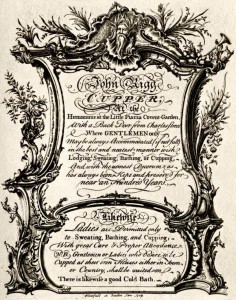 John Rigg
CUPPER
At the
Hummums in the Little Piazza Covent-Garden,
With a Back Door from Charles street
Where GENTLEMEN only
May be always Accommodated (if not full)
in the best and neatest manner with
Lodging, Sweating, Bathing, or Cupping,
And with the utmost Decorum as
has always been Kept and preserv'd for
near an Hundred Years.
Likewise
Ladies are Permitted only
to Sweating, Bathing, and Cupping,
With great Care & Proper Attendance.
NB: Gentlemen & Ladies who desire to be
Cupped at their own Houses either in Town
or Country, shall be waited on.
There is likewise a good Cold Bath